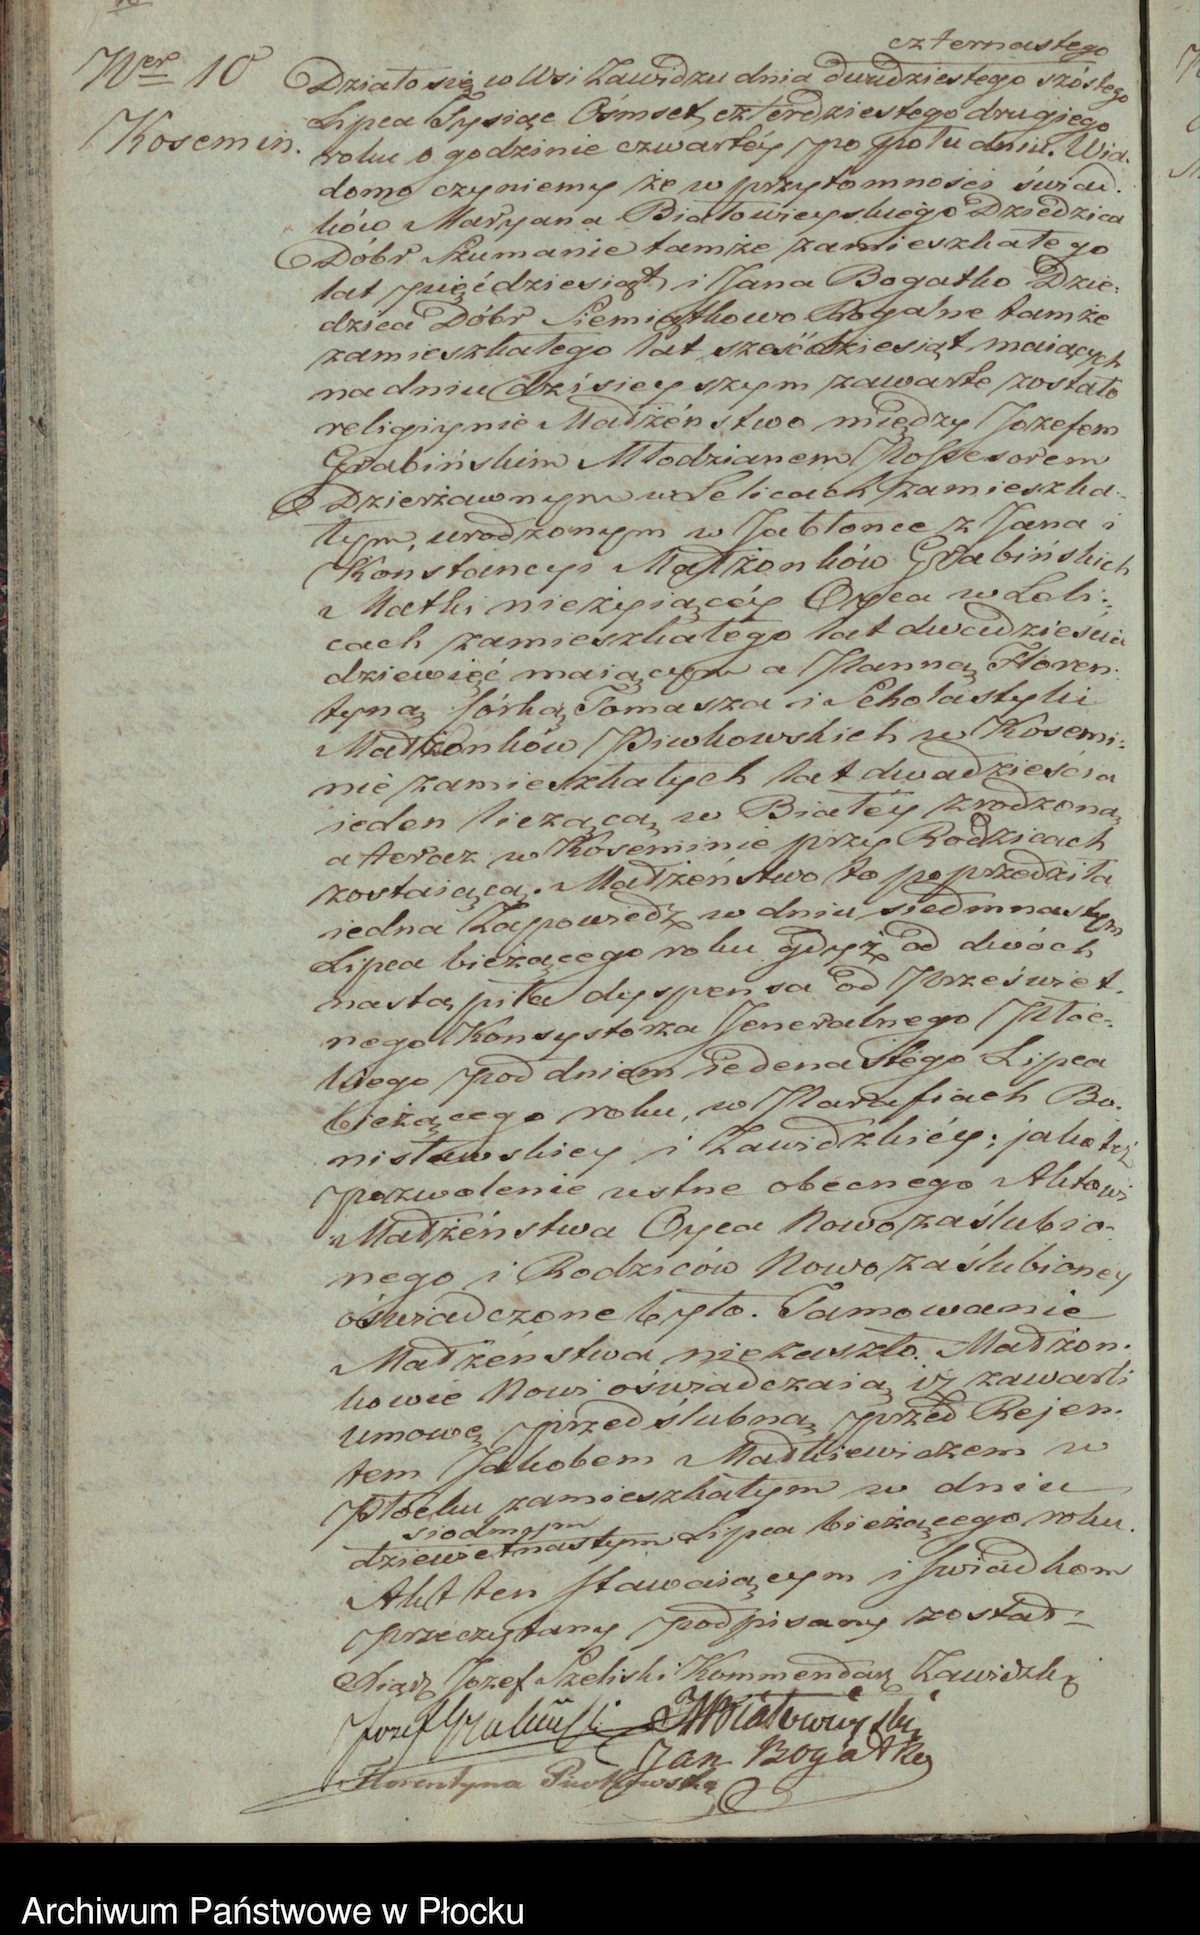 Ner 10
Kosemin.
czternastego
Działo się w Wsi Zawidzu dnia dwudziestego szóstego
Lipca Tysiąc Ośmset czterdziestego drugiego
roku o godzinie czwartéy po połu dniu. Wia-
domo czyniemy że w przytomności świad-
ków Maryana Białowieyskiego Dziedzica
Dóbr Skumanie tamże zamieszkałego
lat pięćdziesiąt, i Jana Bogatko Dzie-
dzica Dóbr Siemiątkowo Rogalne tamże
zamieszkałego lat sześćdziesiąt maiących
na dniu dzisieyszym zawarte zostało
religiynie Małżeństwo między Jozefem
Grabińskim Młodzianem Possesorem
Dzierżawnym w Lelicach zamieszka-
łym, urodzonym w Jabłonce z Jana i
Konstancyi Małżonków Grabińskich
Matki nieżyiącéy Oyca w Leli-
cach zamieszkałego lat dwadzieścia
dziewięć maiącym a Panną Floren-
tyną Córką Tomasza i Scholastyki
Małżonków Piwkowskich w Kosemi-
nie zamieszkałych lat dwadzieścia
ieden liczącą, w Białéy zrodzoną
a teraz w Koseminie przy Rodzicach
zostaiącą. Małżeństwo to poprzedziła
iedna Zapowiedź w dniu siedmnastym
Lipca bieżącego roku gdyż od dwóch
nastąpiła dyspensa od Przeświet-
nego Konsystorza Jeneralnego Płoc-
kiego pod dniem iedenastego Lipca
bieżącego roku, w Parafiach Bo-
nisławskiey i Zawidzkiéy; jako też
pozwolenie ustne obecnego Aktowi
Małżeństwa Oyca Nowozaślubio-
nego i Rodziców Nowozaślubioney
oświadczone było. Tamowanie
Małżeństwa niezaszło. Małżon-
kowie Nowi oświadczaią iż zawarli
umowę przedślubną przed Rejen-
tem Jakobem Madkiewiczem w
Płocku zamieszkałym w dniu
siodmym
dziewietnastym Lipca bieżącego roku.
Akt ten stawaiącym i świadkom
przeczytany podpisany został
Xiądz Jozef Szeliski Kommendarz Zawidzki
Jozef Grabiński MBiałowieyski
Jan Bogatko
Florentyna Piwkowska
Archiwum Państwowe w Płocku